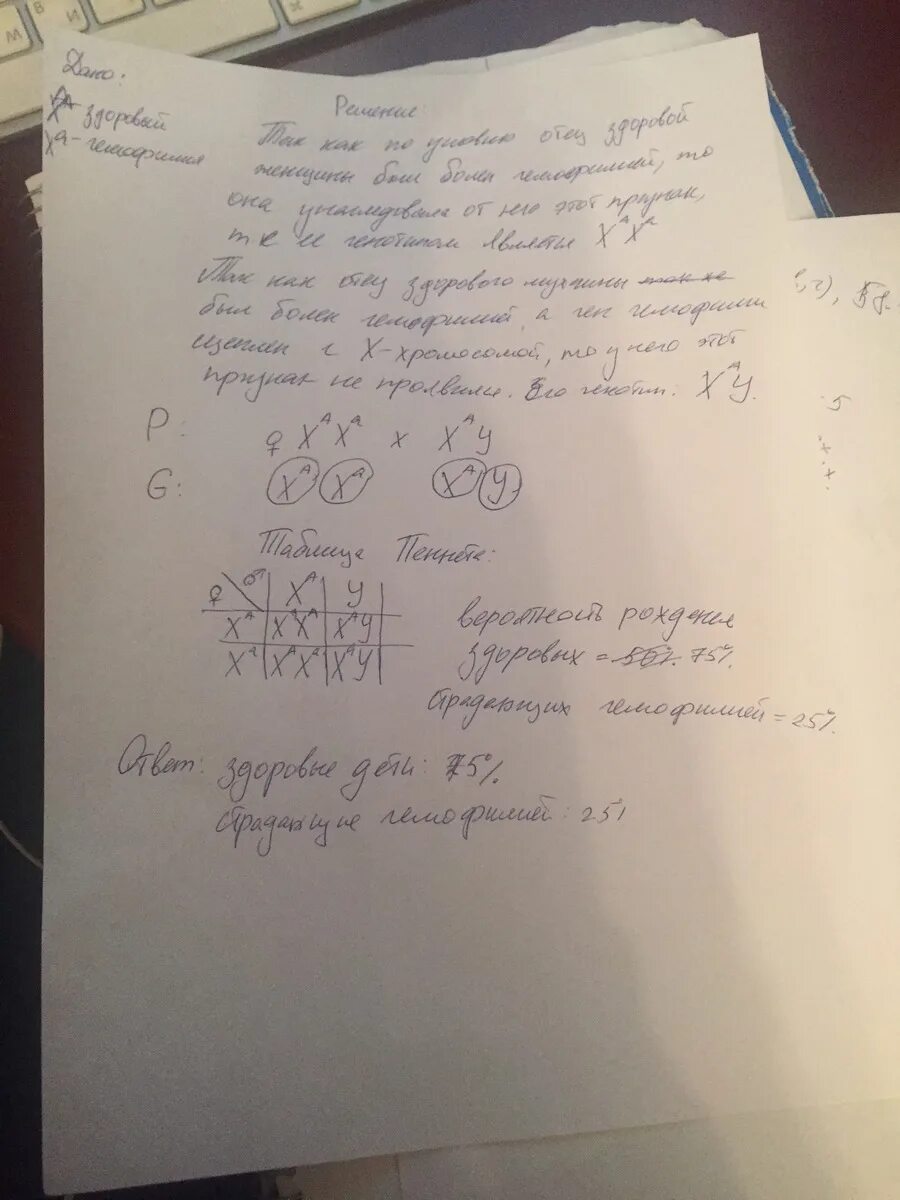 Дано:
X^A - здоровый
X^a - гемофилия
Решение:
Так как по условию отец здоровой
женщины был болен гемофилией, то
она унаследовала от него этот признак,
т к ее генотипом является X^A X^a
Так как отец здорового мужчины так же
был болен гемофилией, а ген гемофилии
сцеплен с X-хромосомой, то у него этот
признак не проявился. Его генотип: X^A Y.
P: ♀ X^A X^a x X^A Y
G: X^A X^a X^A Y
Таблица Пеннета:
♀ ♂ X^A Y
X^A X^A X^A X^A Y
X^a X^A X^a X^a Y
вероятность рождения
здоровых = 50% 75%.
Страдающих гемофилией = 25%.
Ответ: здоровые дети: 75%
Страдающие гемофилией: 25%
5